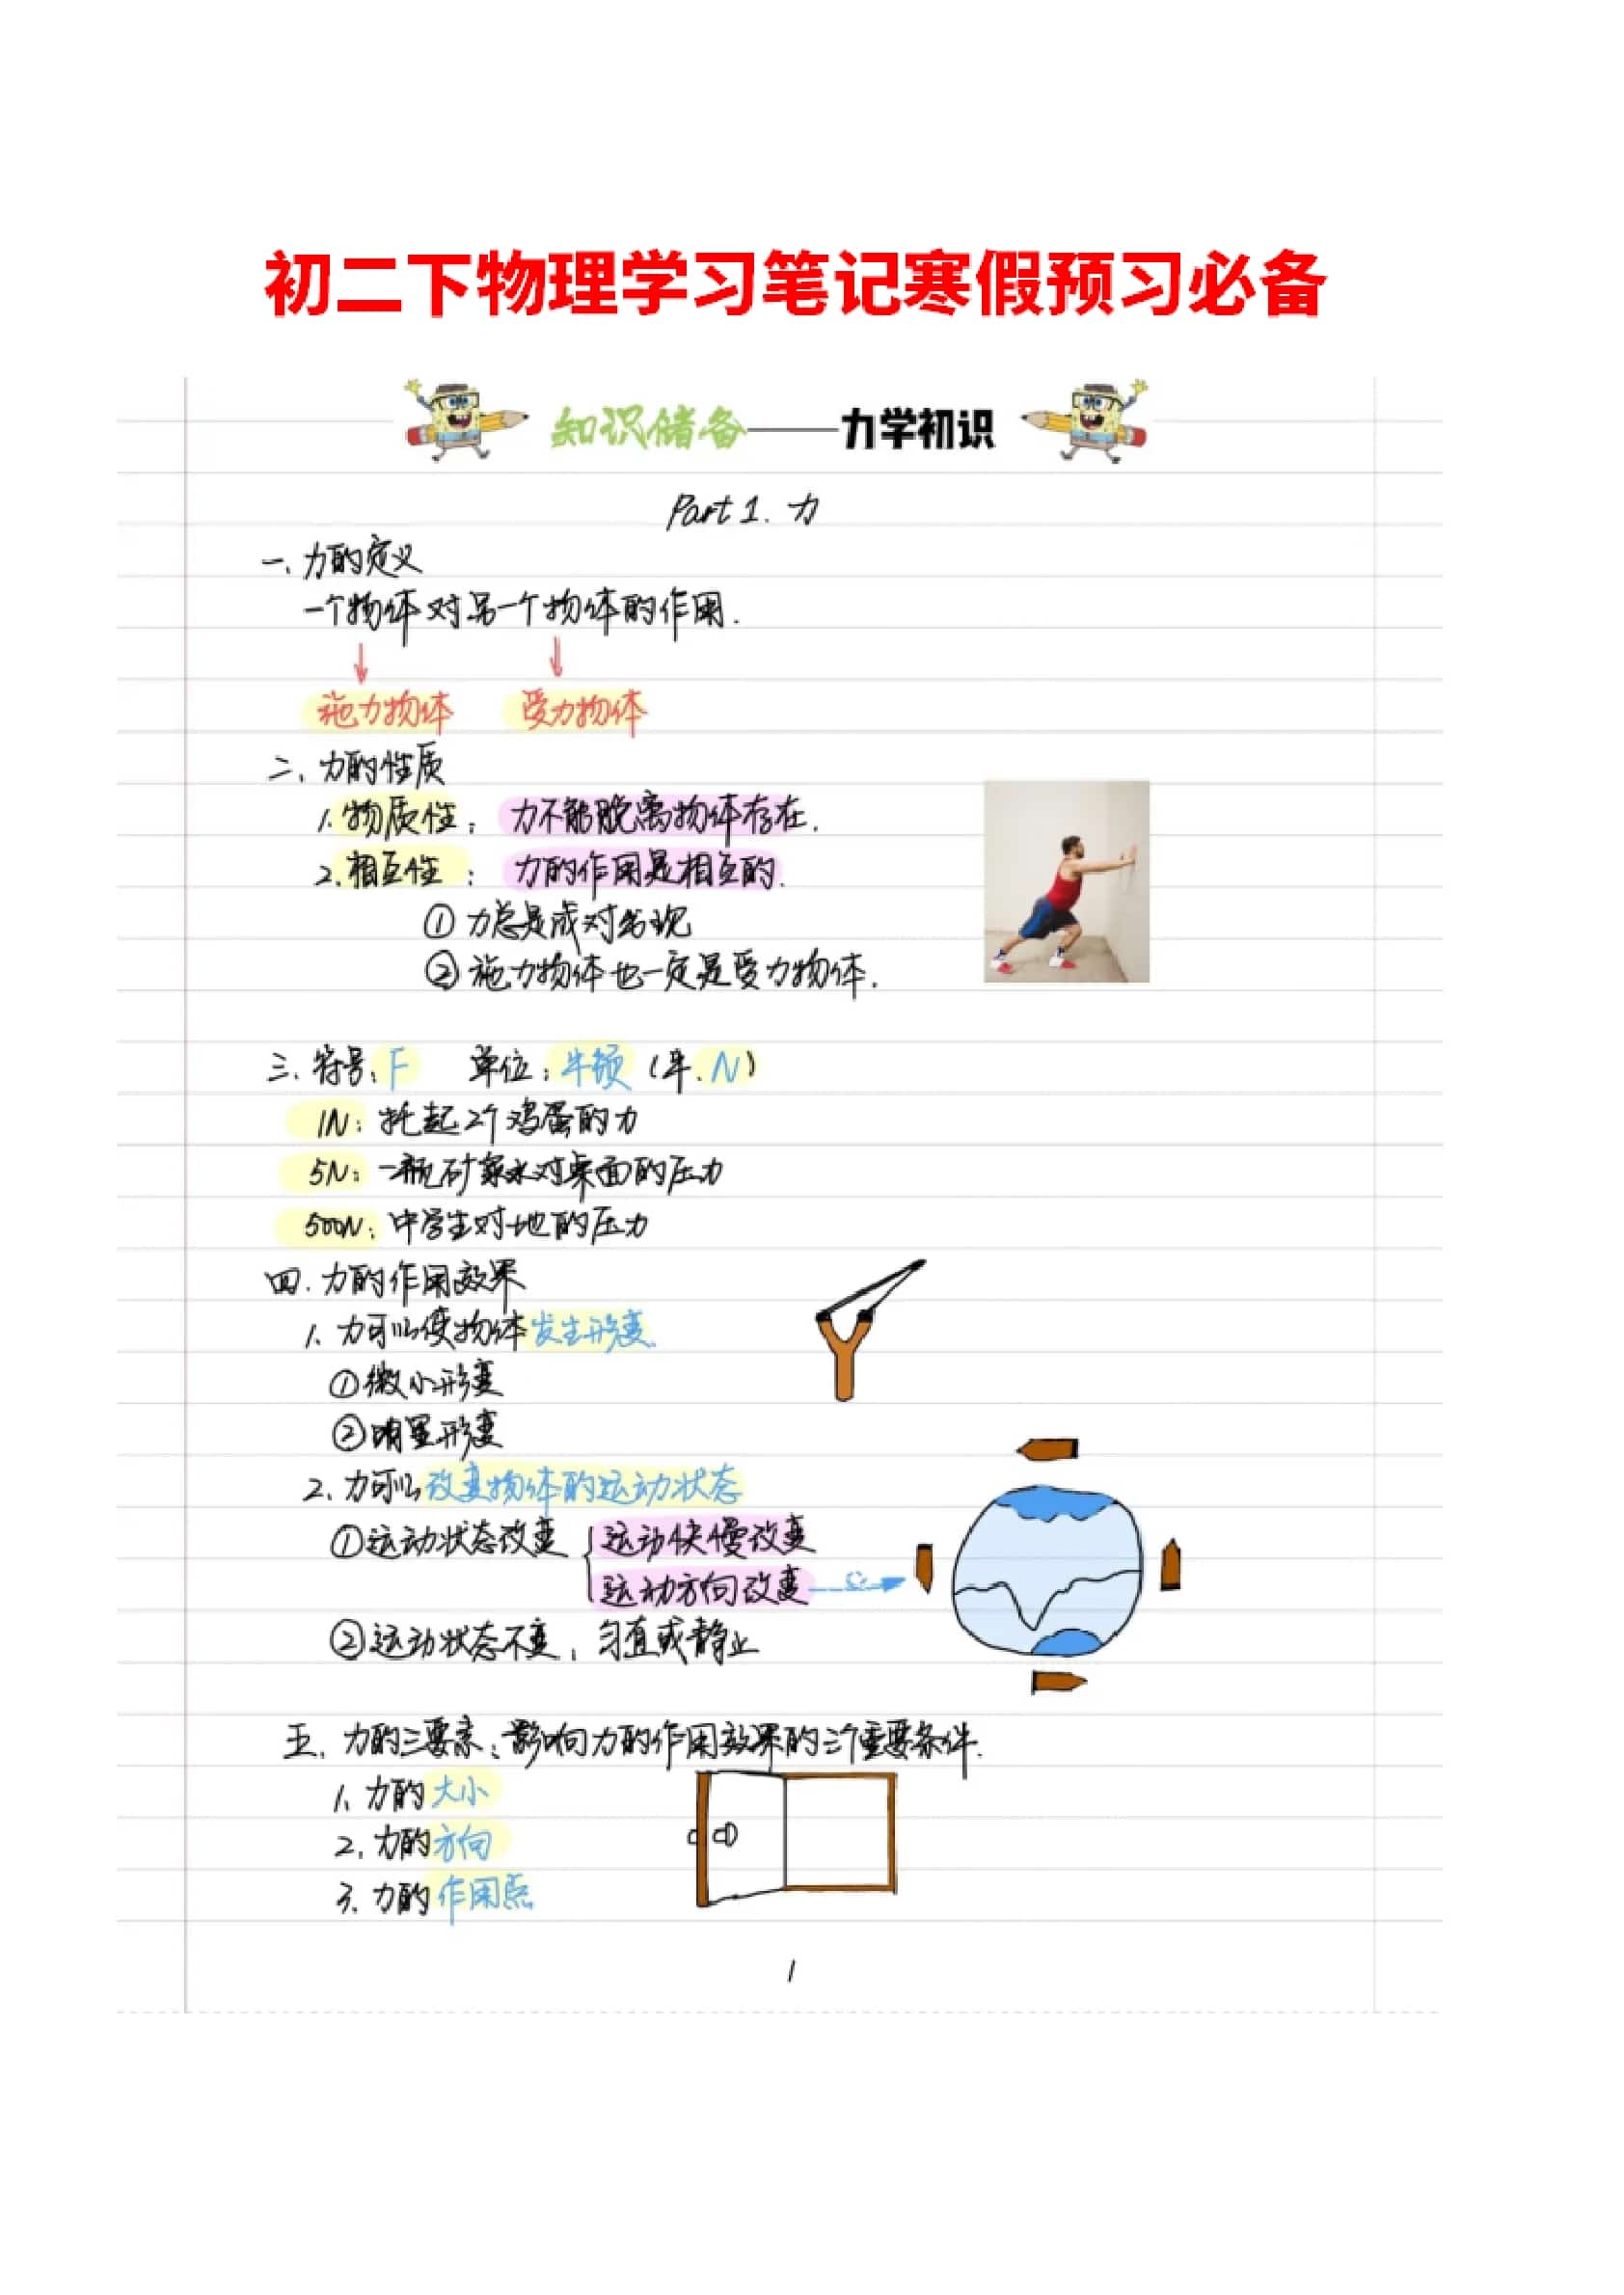 初二下物理学习笔记寒假预习必备
知识储备——力学初识
Part 1. 力
一、力的定义
一个物体对另一个物体的作用.
施力物体 受力物体
二、力的性质
1. 物质性: 力不能脱离物体存在.
2. 相互性: 力的作用是相互的.
① 力总是成对出现
② 施力物体也一定是受力物体.
三. 符号: F 单位: 牛顿 (牛. N)
1N: 托起2个鸡蛋的力
5N: 一瓶矿泉水对桌面的压力
500N: 中学生对地的压力
四. 力的作用效果
1. 力可以使物体发生形变.
①微小形变
②明显形变
2. 力可以改变物体的运动状态
①运动状态改变 { 运动快慢改变
运动方向改变
②运动状态不变: 匀直或静止
五. 力的三要素: 影响力的作用效果的三个重要条件.
1. 力的大小
2. 力的方向
3. 力的作用点
1